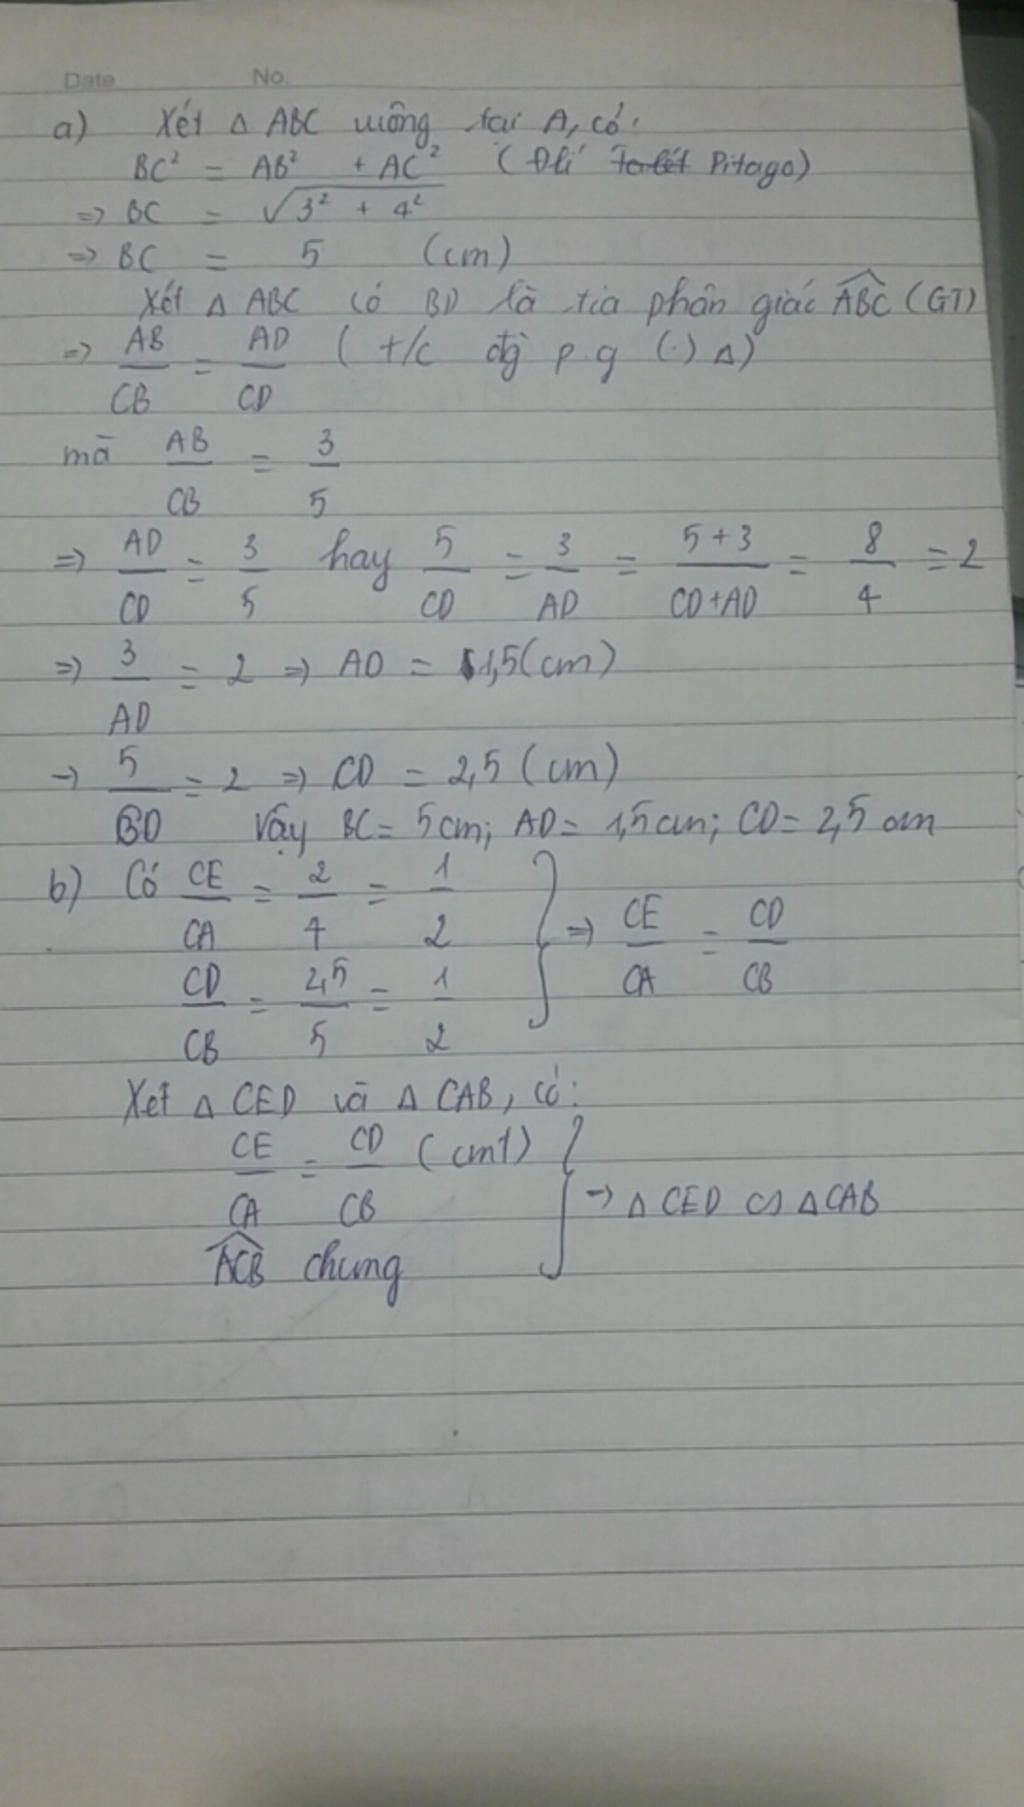 Date No.
a) Xét Δ ABC vuông tại A, có:
BC² = AB² + AC² (Đlí Pitago)
=> BC = √3² + 4²
=> BC = 5 (cm)
Xét Δ ABC có BD là tia phân giác ABC (GT)
=> AB/CB = AD/CD (t/c đg p.g (.) Δ)
mà AB/CB = 3/5
=> AD/CD = 3/5 hay 5/CD = 3/AD = 5+3/CD+AD = 8/4 = 2
=> 3/AD = 2 => AD = 1,5(cm)
-> 5/BD = 2 => CD = 2,5 (cm)
Vậy BC = 5cm; AD = 1,5cm; CD = 2,5 cm
b) Có CE/CA = 2/4 = 1/2
CD/CB = 2,5/5 = 1/2 } => CE/CA = CD/CB
Xét Δ CED và Δ CAB, có:
CE/CA = CD/CB (cmt)
ACB chung } -> Δ CED ∽ Δ CAB